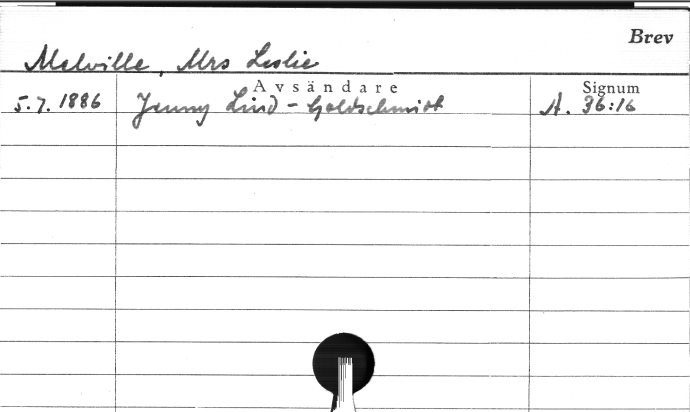 Brev
Melville, Mrs Leslie
Avsändare Signum
5.7.1886 Jenny Lind - Goldschmidt A. 36:16